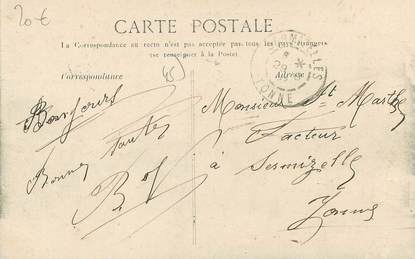 20€
CARTE POSTALE
La Correspondance au recto n'est pas acceptée par tous les pays étrangers
(se renseigner à la Poste)
Correspondance
Adresse
45
YONNE
Bonjour
Bonne Santé
BV
Monsieur St Marth
Facteur
à Sermizelle
Yonne